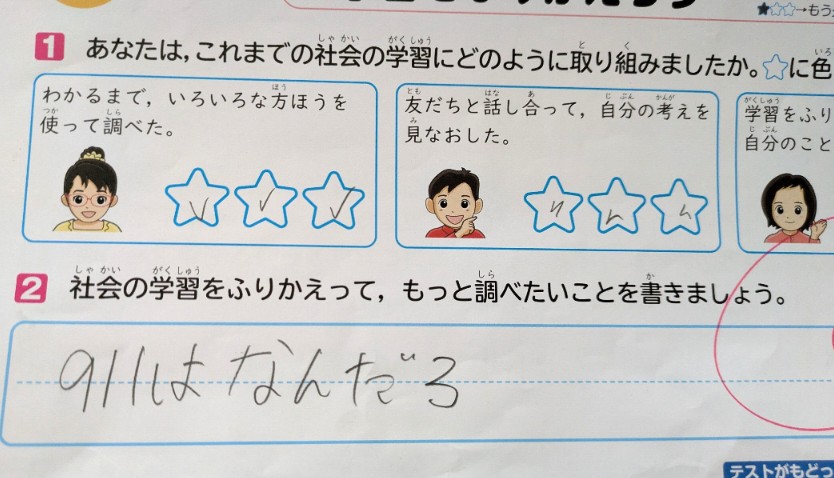 ★☆☆→もう
1 あなたは,これまでの社会の学習にどのように取り組みましたか。☆に色
わかるまで，いろいろな方ほうを
使って調べた。
友だちと話し合って，自分の考えを
見なおした。
学習をふり
自分のこと
2 社会の学習をふりかえって，もっと調べたいことを書きましょう。
911はなんだろ
テストがもどっ